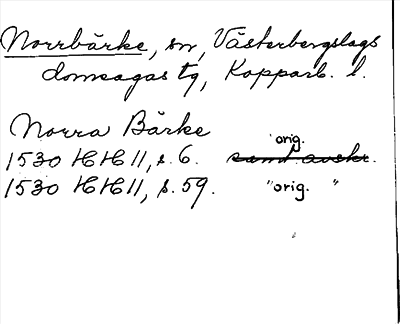 Norrbärke, sn, Västerbergslags
domsagas tg, Kopparb. l.
Norra Bärke
orig.
1530 HH 11, s. 6. samt avskr.
1530 HH 11, s. 59. "orig. "